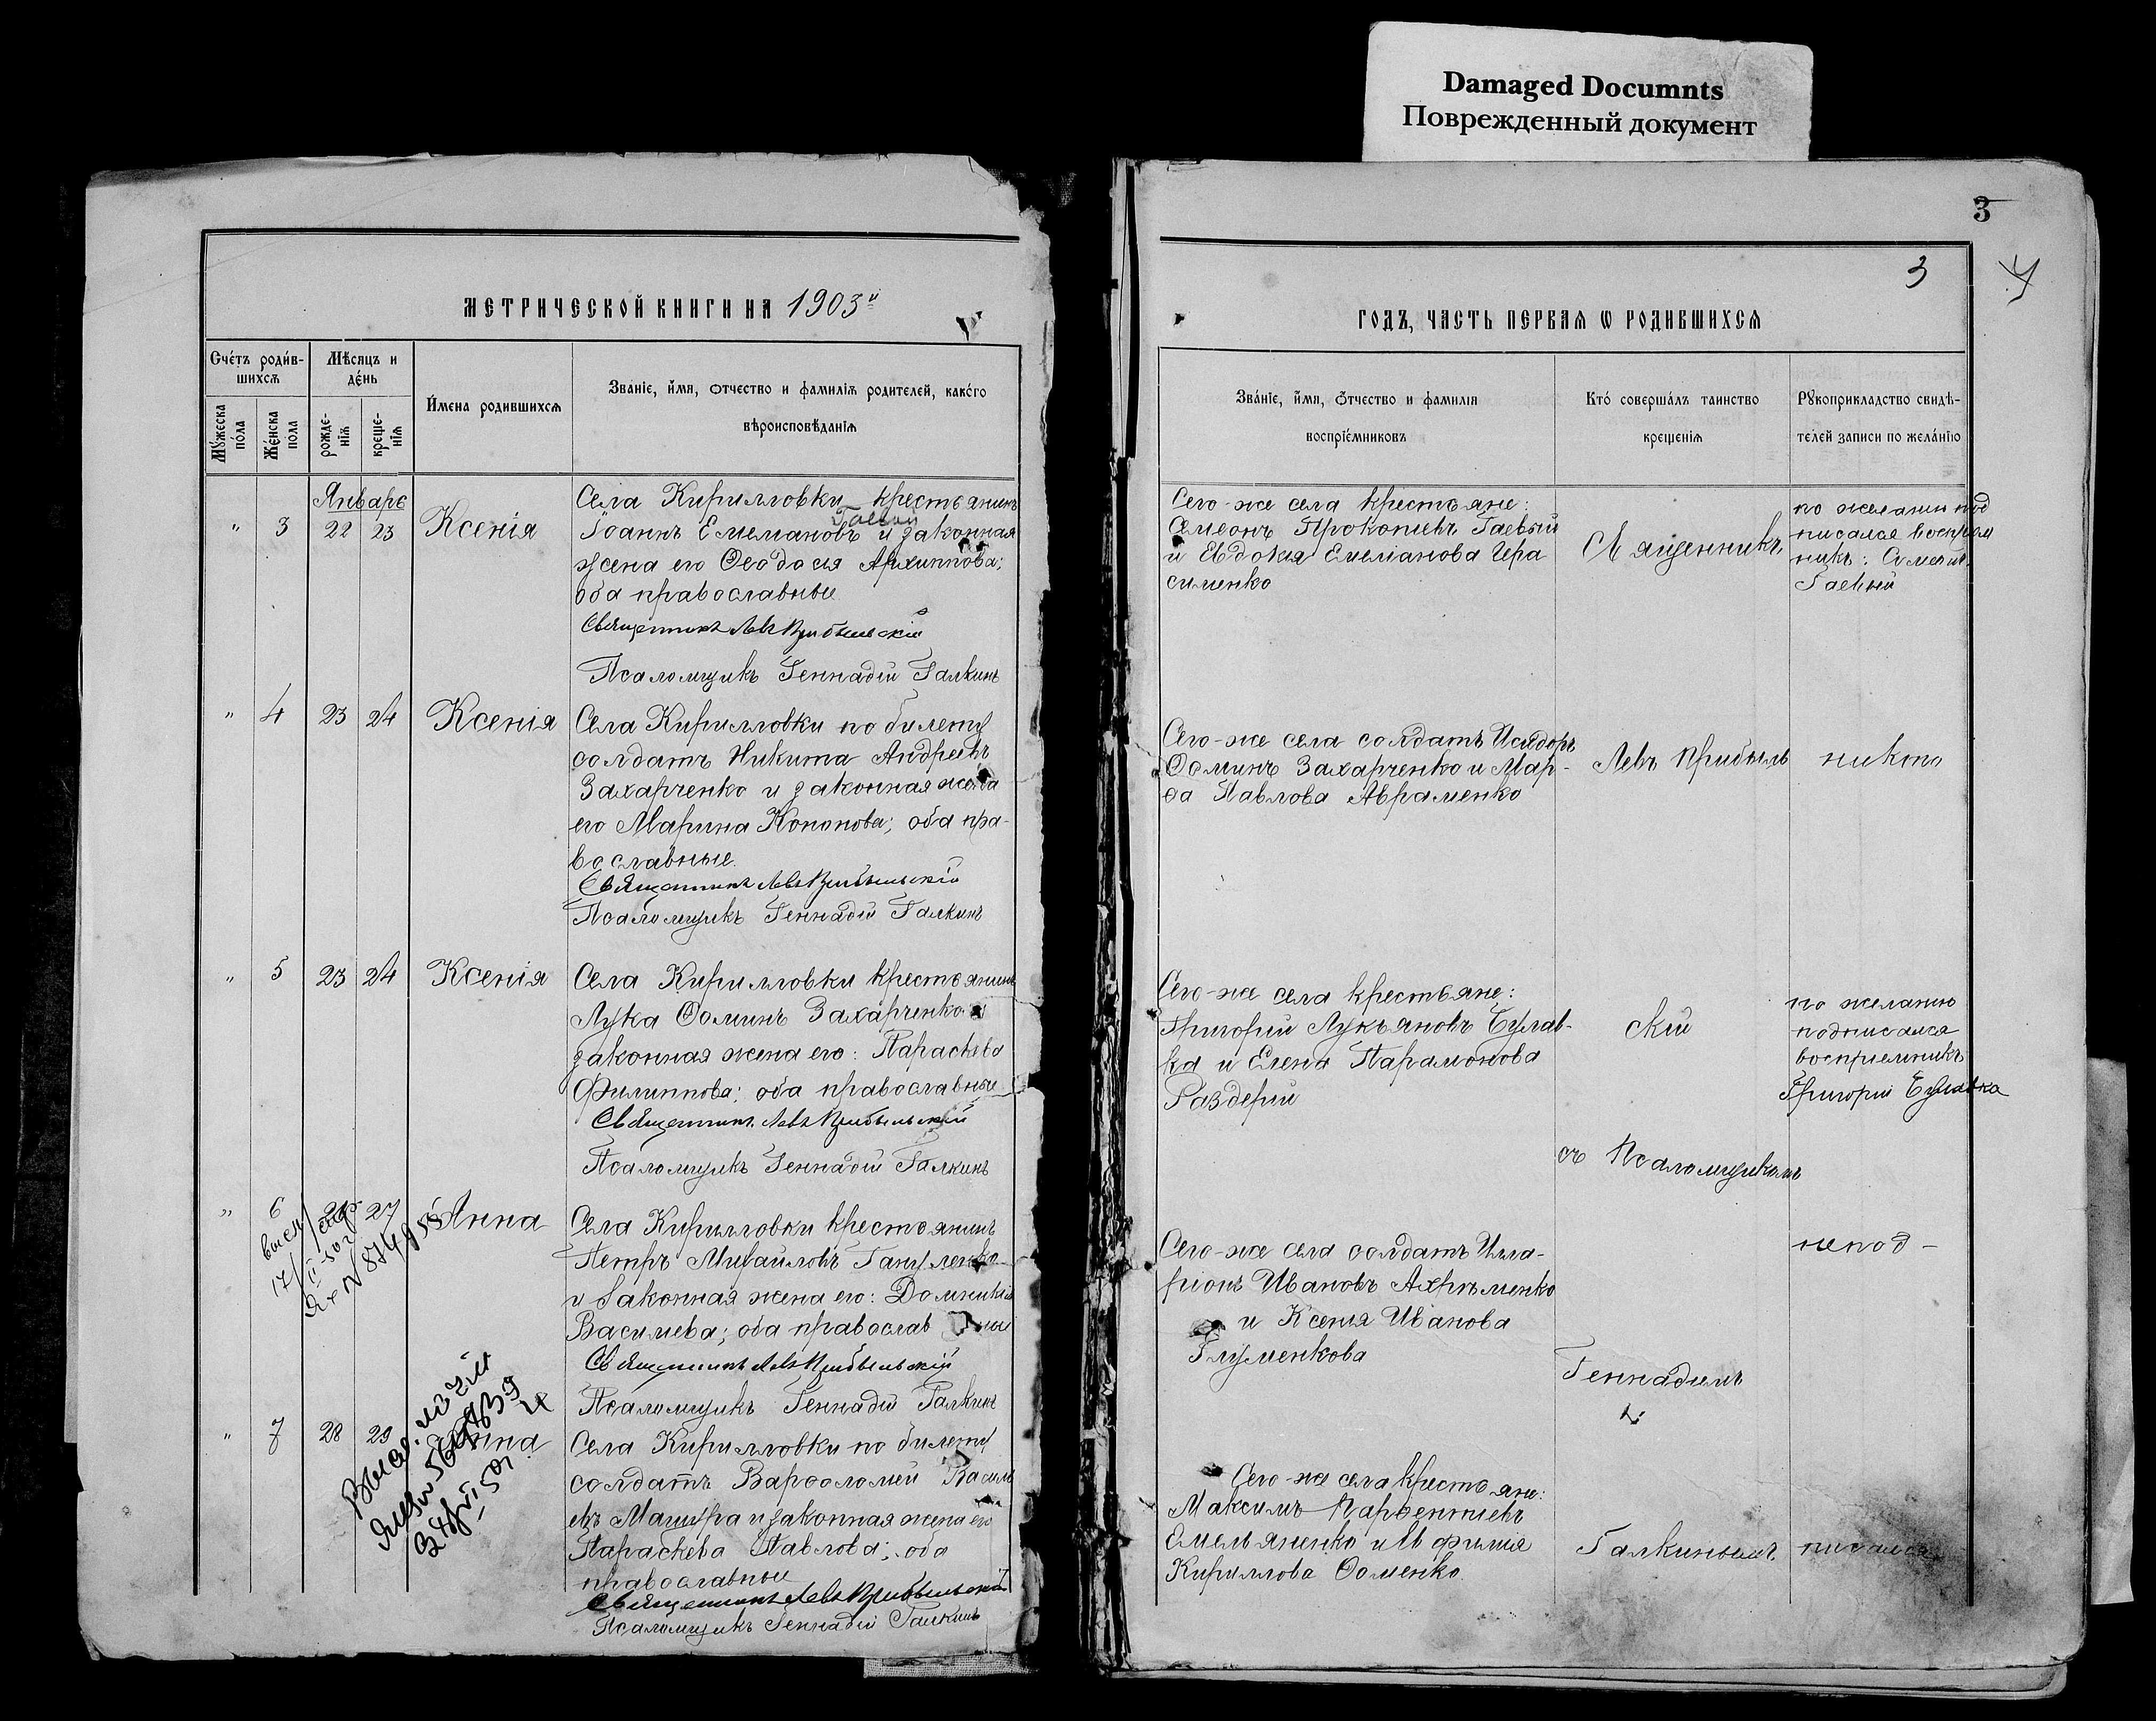 Damaged Documnts
Поврежденный документ
3
3
4
МЕТРИЧЕСКОЙ КНИГИ НА 1903й
ГОДЪ, ЧАСТЬ ПЕРВАЯ Ѡ РОДИВШИХСЯ
Счетъ родив-
шихся
Мѣсяцъ и
день
Мужеска
пола
Женска
пола
рожде-
нія
креще-
нія
Имена родившихся
Званіе, имя, отчество и фамилія родителей, какого
вѣроисповѣданія
Званіе, имя, отчество и фамилія
воспріемниковъ
Кто совершалъ таинство
крещенія
Рукоприкладство свидѣ-
телей записи по желанію
Январь
" 3 22 23 Ксенія
Села Кирилловки крестьянинъ
Іоаннъ Емелиановъ и законная
жена его Ѳеодосія Архиппова;
оба православные
Священникъ Левъ Прибыльскій
Псаломщикъ Геннадій Галкинъ
Сего-же села крестьяне:
Симеонъ Прокопіевъ Гаевый
и Евдокія Емеліанова Гера
сименко
Священникъ
по желанію под
писался воспріем
никъ: Симеонъ
Гаевый
" 4 23 24 Ксенія
Села Кирилловки по билету
солдатъ Никита Андреевъ
Захарченко и законная жена
его Марина Кононова; оба пра-
вославные.
Священникъ Левъ Прибыльскій
Псаломщикъ Геннадій Галкинъ
Сего-же села солдатъ Исидоръ
Ѳоминъ Захарченко и Мар-
ѳа Павлова Авраменко
Левъ Прибыль
никто
" 5 23 24 Ксенія
Села Кирилловки крестьянинъ
Лука Ѳоминъ Захарченко и
законная жена его: Параскева
Филиппова; оба православные
Священникъ Левъ Прибыльскій
Псаломщикъ Геннадій Галкинъ
Сего-же села крестьяне:
Григорій Лукьяновъ Булав-
ка и Елена Парамонова
Раздерій
скій
по желанію
подписался
воспріемникъ
Григорій Булавка
съ Псаломщикомъ
" 6 27 Анна
Села Кирилловки крестьянинъ
Петръ Михайловъ
и законная жена его: Домникія
Василіева; оба православные
Священникъ Левъ Прибыльскій
Псаломщикъ Геннадій Галкинъ
Сего-же села солдатъ Илла-
ріонъ Ивановъ Ахріменко
и Ксенія Иванова
Глуменкова
Геннадіемъ
непод-
" 7 28 29 Анна
Села Кирилловки по билету
солдатъ Варѳоломей Василь
евъ Мащура и законная жена его
Параскева Павлова; оба
православные
Священникъ Левъ Прибыльскій
Псаломщикъ Геннадій Галкинъ
Сего-же села крестьяне:
Максимъ Парѳентіевъ
Емельяненко и Евфимія
Кириллова Ѳоменко
Галкинымъ
писался